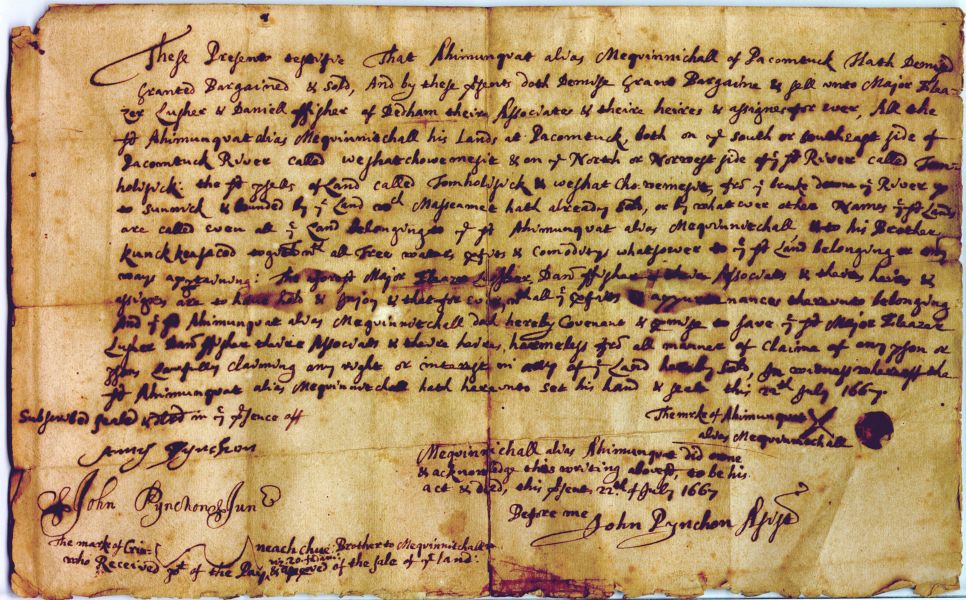 These Presents testifie That Ahimunquat alias Mequinnichall of Pacomtuck Hath Demised
Granted Bargained & Sold, And by these psents doth Demise Grant Bargaine & sell unto Major Elea=
zer Lusher & Daniell ffisher of Dedham theire Associates & theire heires & assignes for ever, All the
sd Ahimunquat alias Mequinnitchall his Lands at Pacomtuck both on ye south or southeast side of
Pacomtuck River called weshatchowmesit & on ye North or Norwest side of ye sd River called Tom=
holisick: the sd psells of Land called Tomholisick & weshatchowmesit, from ye downe ye River
to sunsick & bounded by ye Land wch Masseamet hath already sold, or by whatever other Names ye sd Lands
are called even all ye Land belonging to ye sd Ahimunquat alias Mequinnitchall & to his Brother
Kunckkeasacod together wth all Free waters pfits & comodity whatsoever to ye sd Land belonging or any
ways appertaining: The foresd Major Eleazer Lusher Dan: ffisher theire Associates & theire heires &
assignes are to have hold & Injoy & that for ever wth all ye pfites & appurtenances thereunto belonging
And ye sd Ahimunquat alias Mequinnitchall doth hereby Covenant & pmise to save ye sd Major Eleazar
Lusher Dan: ffisher theire Associats & theire heires, harmeless from all manner of claime of any pson or
psons Lawfully claiming any right or interest in any of ye Land hereby sold, In witness whereof the
sd Ahimunquat alias Mequinnitchall hath hereunto set his hand & seale this 22th July 1667.
Subscribed sealed & dd in ye psence off
The mrke of Ahimunquat X
alias Mequinnitchall
Amy Pynchon
John Pynchon Jun
Mequinnichall alias Ahimunquat did owne
& acknowledge this writing abovesd, to be his
act & deed, this psent 22th of July 1667
Before me
John Pynchon Assist
The marke of
neachchue Brother to Mequinnitchall
who Received pt of the Pay, & approved of the sale of ye land.